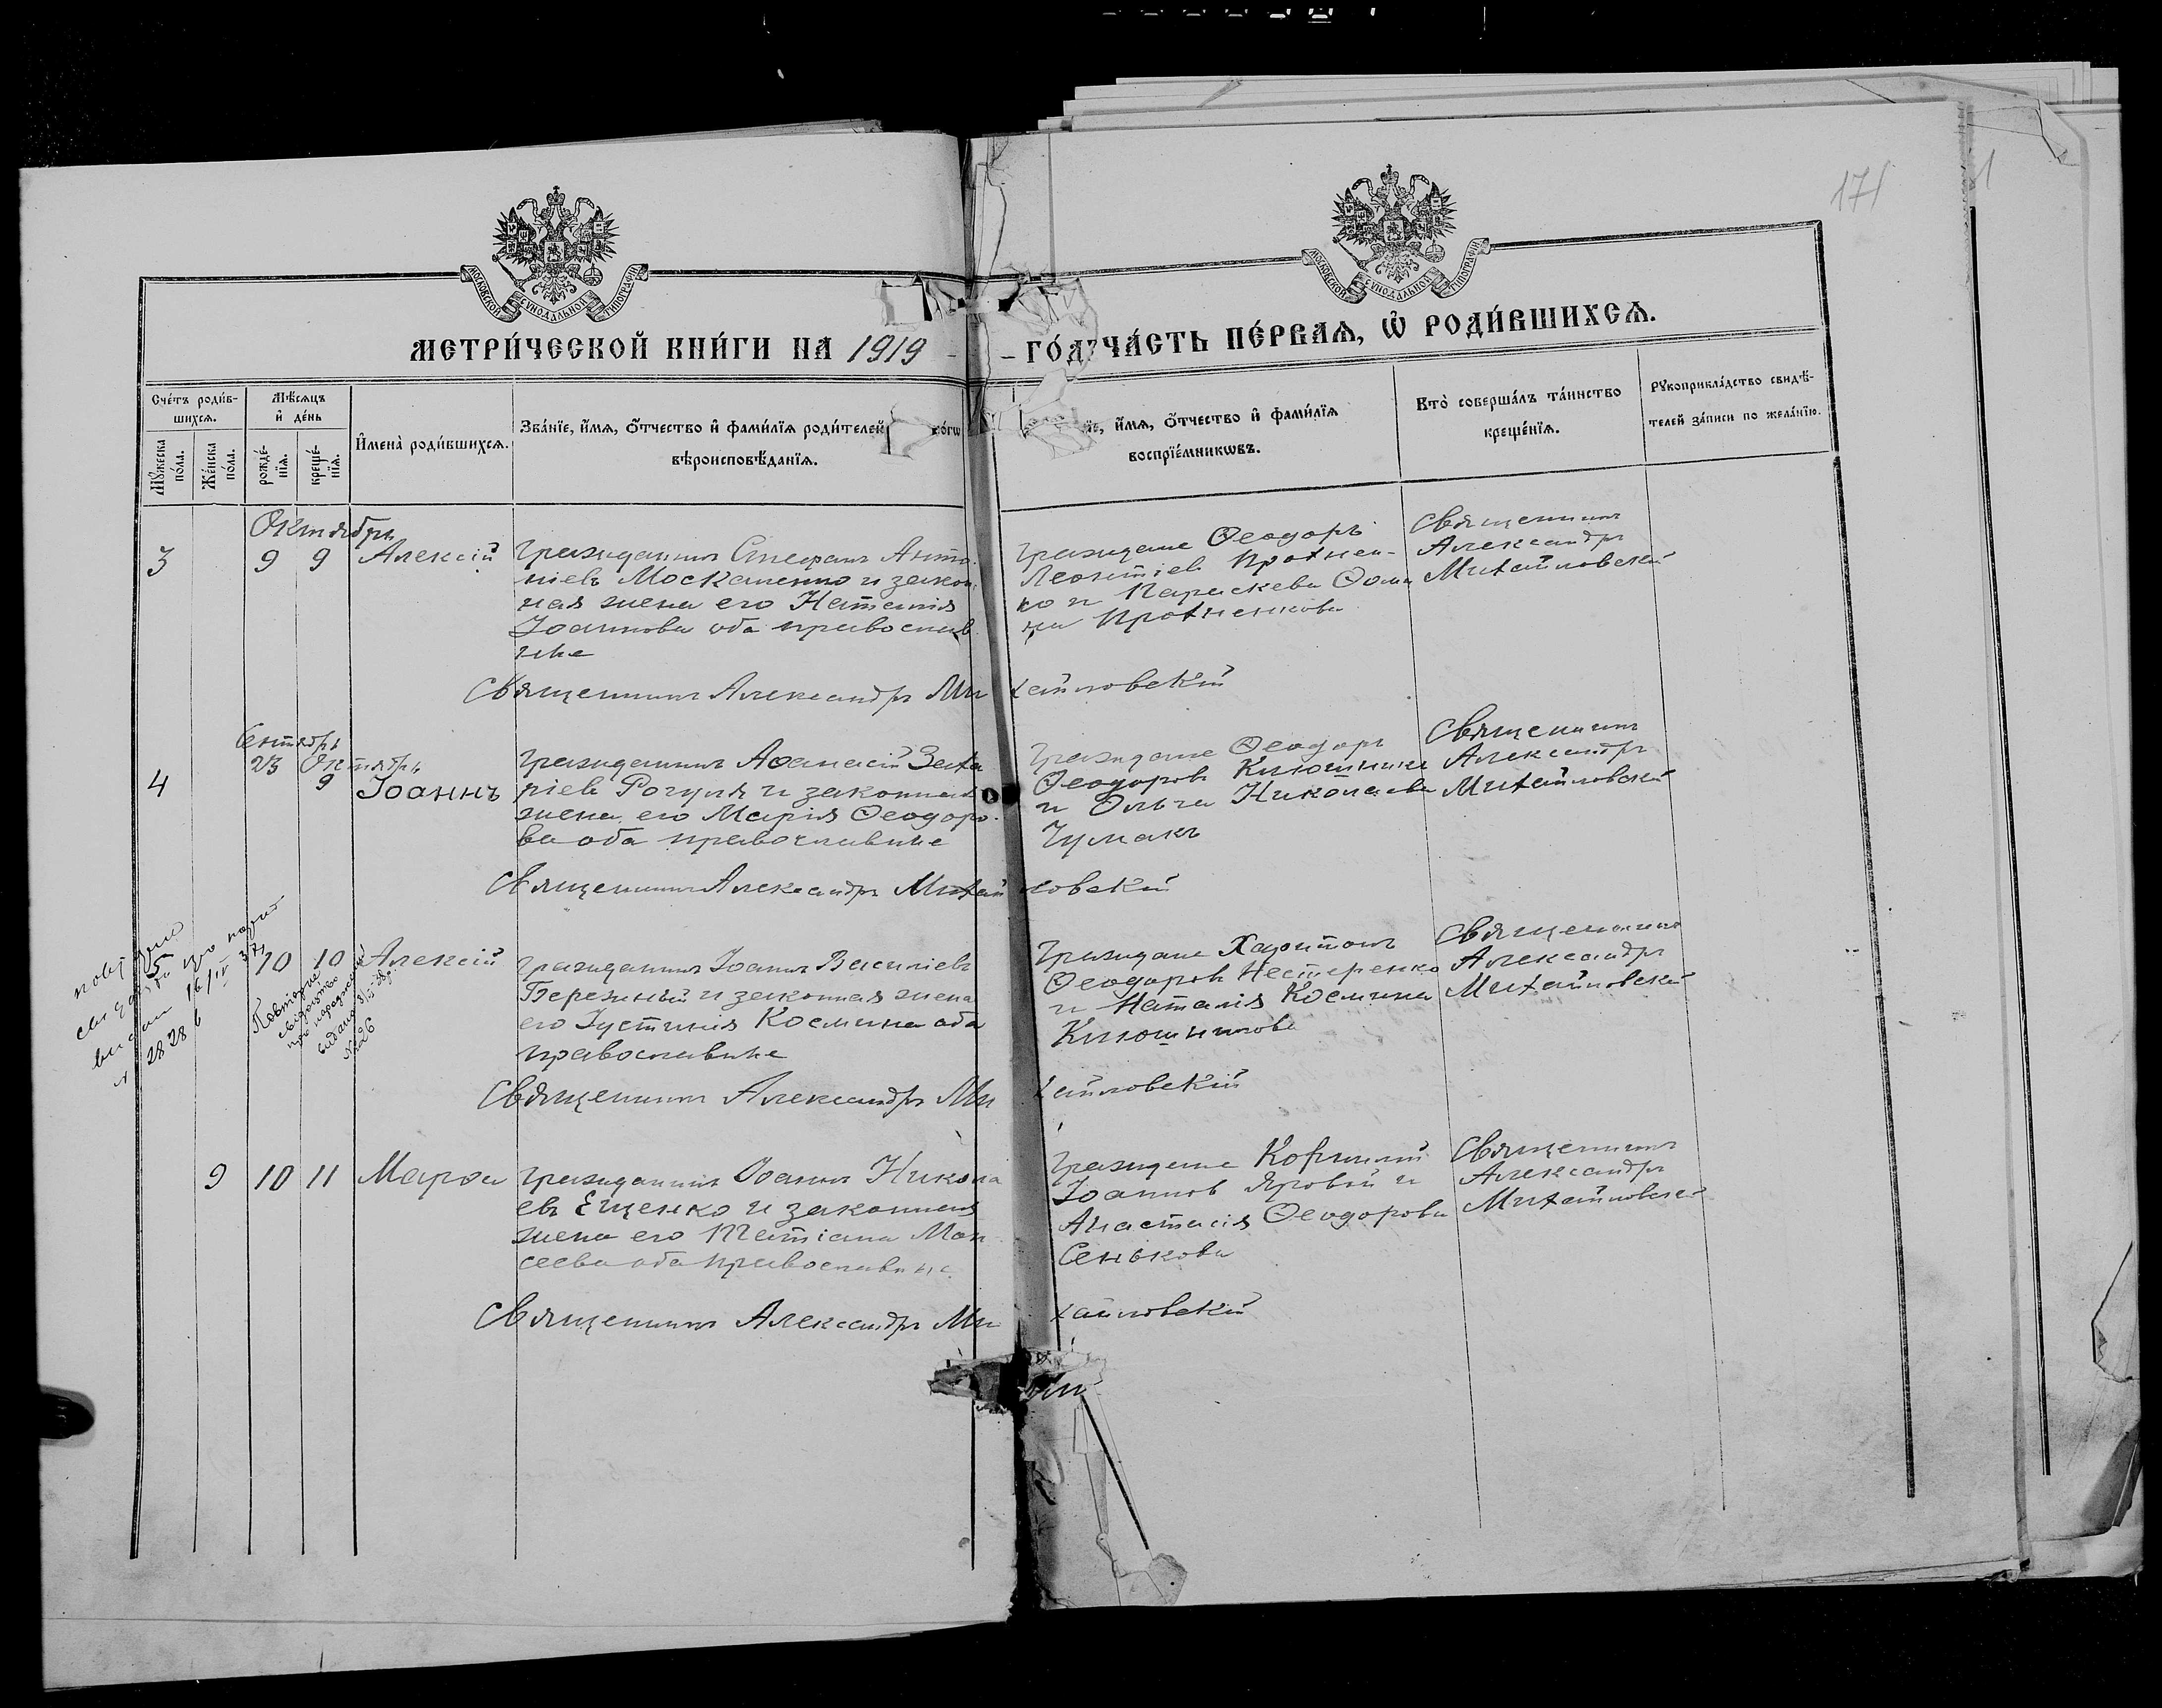 171
МОСКОВСКОЙ СУНОДАЛЬНОЙ ТИПОГРАФІИ
МОСКОВСКОЙ СУНОДАЛЬНОЙ ТИПОГРАФІИ
МЕТРИ́ЧЕСКОЙ КНИ́ГИ НА 1919 ГО́ДЪ ЧА́СТЬ ПЕ́РВАѦ, Ѡ҆ РОДИ́ВШИХСѦ.
Сче́тъ роди́в-
шихсѧ.
Мꙋ́жеска по́ла.
Же́нска по́ла.
Мѣ́сѧцъ
и҆ де́нь
рожде́-
нїѧ.
креще́-
нїѧ.
И҆мена̀ роди́вшихсѧ.
Зва́нїе, и҆́мѧ, ѻ҆́тчество и҆ фами́лїѧ роди́телей
вѣроисповѣ́данїѧ.
и҆́мѧ, ѻ҆́тчество и҆ фами́лїѧ
воспрїе́мникѡвъ.
Кто̀ соверша́лъ та́инство
креще́нїѧ.
Рꙋкоприкла́дство свидѣ́-
телей за́писи по жела́нїю.
Октябрь
3 9 9 Алексій
Гражданинъ Стефанъ Анто-
ніевъ Москаленко и закон-
ная жена его Наталія
Іоаннова оба православ-
ные
Граждане Ѳеодоръ
Леонтіевъ Прохнен-
ко и Параскева Ѳоми
на Прохненкова
Священникъ
Александръ
Михайловскій
Священникъ Александръ Михайловскій
Сентябрь
23 Октябрь
4 9 Іоаннъ
Гражданинъ Аѳанасій Заха
ріевъ Рогуля и законная
жена его Марія Ѳеодоро-
ва оба православные
Граждане Ѳеодоръ
Ѳеодоровъ Клюшникъ
и Ольга Николаева
Чумакъ
Священникъ
Александръ
Михайловскій
Священникъ Александръ Михайловскій
5 10 10 Алексій
видан 16/IV 37
№ 28286
Повторне
свідоцтво
про народження
видано
№226
Гражданинъ Іоаннъ Василіевъ
Бережный и законная жена
его Іустинія Космина оба
православные
Граждане Харитонъ
Ѳеодоровъ Нестеренко
и Наталія Космина
Клюшникова
Священникъ
Александръ
Михайловскій
Священникъ Александръ Михайловскій
9 10 11 Марѳа
Гражданинъ Іоаннъ Никола
евъ Ещенко и законная
жена его Татіана Мои-
сеева оба православные
Граждане Корнилій
Іоанновъ Яровой и
Анастасія Ѳеодорова
Сенькова
Священникъ
Александръ
Михайловскій
Священникъ Александръ Михайловскій